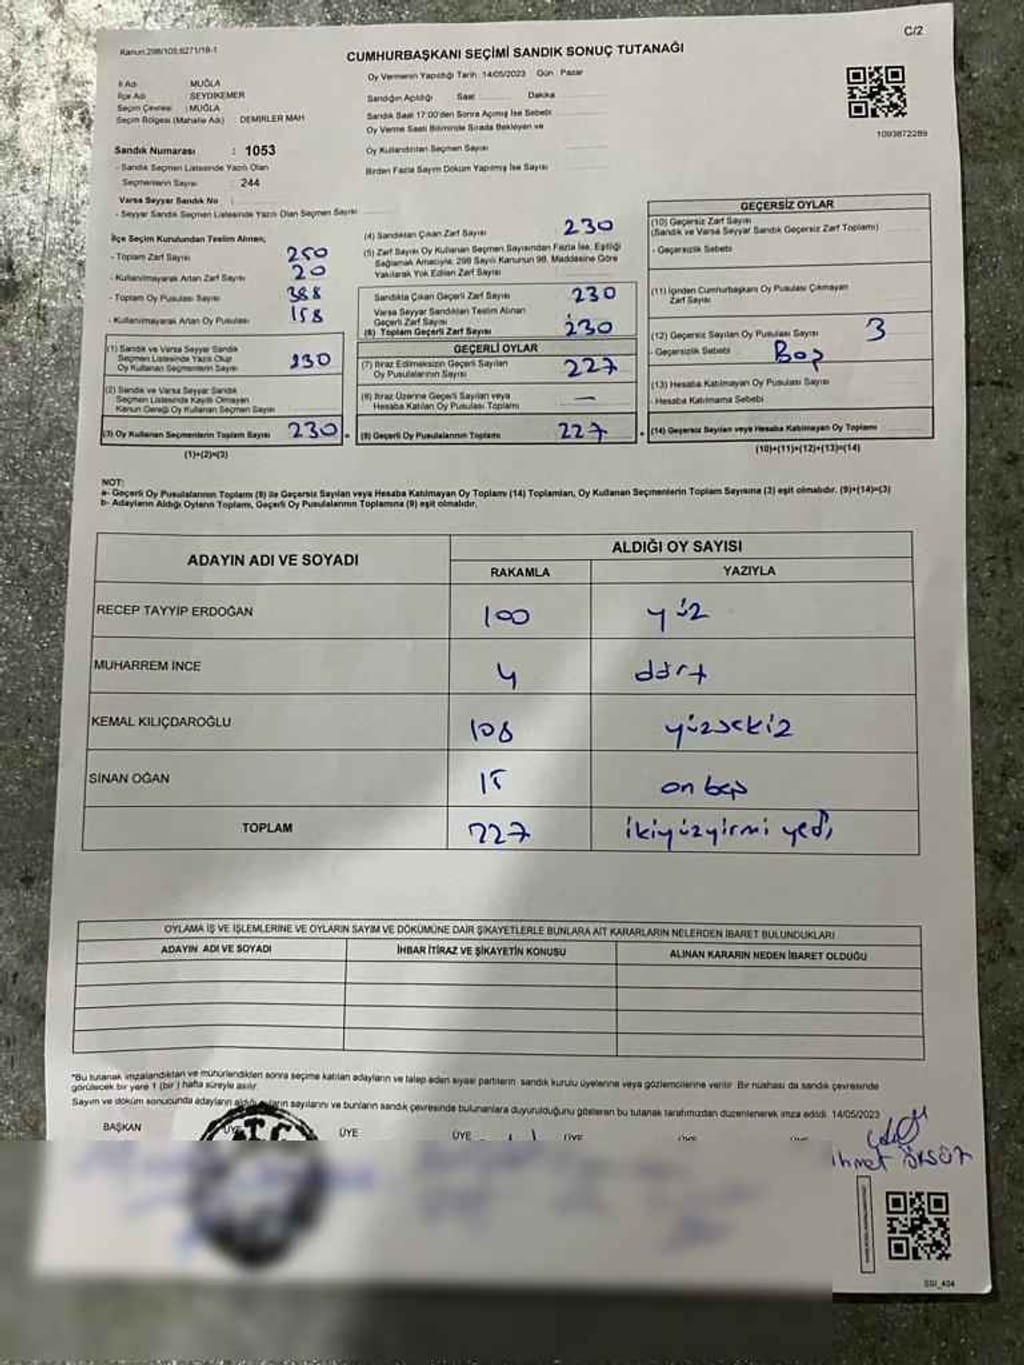 C/2
Kanun:298/105,6271/18-1
CUMHURBAŞKANI SEÇİMİ SANDIK SONUÇ TUTANAĞI
İl Adı : MUĞLA
İlçe Adı : SEYDİKEMER
Seçim Çevresi : MUĞLA
Seçim Bölgesi (Mahalle Adı) : DEMİRLER MAH
Oy Vermenin Yapıldığı Tarih :14/05/2023 Gün : Pazar
Sandığın Açıldığı Saat: Dakika
Sandık Saat 17:00'den Sonra Açılmış İse Sebebi:
Oy Verme Saati Bitiminde Sırada Bekleyen ve
Oy Kullandırılan Seçmen Sayısı
Birden Fazla Sayım Döküm Yapılmış İse Sayısı
1093872289
Sandık Numarası : 1053
- Sandık Seçmen Listesinde Yazılı Olan
Seçmenlerin Sayısı : 244
Varsa Seyyar Sandık No :
- Seyyar Sandık Seçmen Listesinde Yazılı Olan Seçmen Sayısı
İlçe Seçim Kurulundan Teslim Alınan;
- Toplam Zarf Sayısı 250
- Kullanılmayarak Artan Zarf Sayısı 20
- Toplam Oy Pusulası Sayısı 388
- Kullanılmayarak Artan Oy Pusulası 158
(1) Sandık ve Varsa Seyyar Sandık
Seçmen Listesinde Yazılı Olup
Oy Kullanan Seçmenlerin Sayısı 230
(2) Sandık ve Varsa Seyyar Sandık
Seçmen Listesinde Kayıtlı Olmayan
Kanun Gereği Oy Kullanan Seçmen Sayısı
(3) Oy Kullanan Seçmenlerin Toplam Sayısı 230
(1)+(2)=(3)
(4) Sandıktan Çıkan Zarf Sayısı 230
(5) Zarf Sayısı Oy Kullanan Seçmen Sayısından Fazla İse, Eşitliği
Sağlamak Amacıyla, 298 Sayılı Kanunun 98. Maddesine Göre
Yakılarak Yok Edilen Zarf Sayısı
Sandıkta Çıkan Geçerli Zarf Sayısı 230
Varsa Seyyar Sandıktan Teslim Alınan
Geçerli Zarf Sayısı
(6) Toplam Geçerli Zarf Sayısı 230
GEÇERLİ OYLAR
(7) İtiraz Edilmeksizin Geçerli Sayılan
Oy Pusulalarının Sayısı 227
(8) İtiraz Üzerine Geçerli Sayılan veya
Hesaba Katılan Oy Pusulası Toplamı —
(9) Geçerli Oy Pusulalarının Toplamı 227
GEÇERSİZ OYLAR
(10) Geçersiz Zarf Sayısı
(Sandık ve Varsa Seyyar Sandık Geçersiz Zarf Toplamı)
- Geçersizlik Sebebi
(11) İçinden Cumhurbaşkanı Oy Pusulası Çıkmayan
Zarf Sayısı
(12) Geçersiz Sayılan Oy Pusulası Sayısı 3
- Geçersizlik Sebebi Boş
(13) Hesaba Katılmayan Oy Pusulası Sayısı
- Hesaba Katılmama Sebebi
(14) Geçersiz Sayılan veya Hesaba Katılmayan Oy Toplamı
(10)+(11)+(12)+(13)=(14)
NOT:
a- Geçerli Oy Pusulalarının Toplamı (9) ile Geçersiz Sayılan veya Hesaba Katılmayan Oy Toplamı (14) Toplamları, Oy Kullanan Seçmenlerin Toplam Sayısına (3) eşit olmalıdır. (9)+(14)=(3)
b- Adayların Aldığı Oyların Toplamı, Geçerli Oy Pusulalarının Toplamına (9) eşit olmalıdır.
ADAYIN ADI VE SOYADI ALDIĞI OY SAYISI
RAKAMLA YAZIYLA
RECEP TAYYİP ERDOĞAN 100 yüz
MUHARREM İNCE 4 dört
KEMAL KILIÇDAROĞLU 108 yüzsekiz
SİNAN OĞAN 15 on beş
TOPLAM 227 ikiyüzyirmi yedi
OYLAMA İŞ VE İŞLEMLERİNE VE OYLARIN SAYIM VE DÖKÜMÜNE DAİR ŞİKAYETLERLE BUNLARA AİT KARARLARIN NELERDEN İBARET BULUNDUKLARI
ADAYIN ADI VE SOYADI İHBAR İTİRAZ VE ŞİKAYETİN KONUSU ALINAN KARARIN NEDEN İBARET OLDUĞU
*Bu tutanak imzalandıktan ve mühürlendikten sonra seçime katılan adayların ve talep eden siyasi partilerin sandık kurulu üyelerine veya gözlemcilerine verilir. Bir nüshası da sandık çevresinde
görülecek bir yere 1 (bir) hafta süreyle asılır.
Sayım ve döküm sonucunda adayların aldığı oyların sayılarını ve bunların sandık çevresinde bulunanlara duyurulduğunu gösteren bu tutanak tarafımızdan düzenlenerek imza edildi. 14/05/2023
BAŞKAN ÜYE ÜYE ÜYE ÜYE
ihmet ÖKSÜZ
SSİ_404